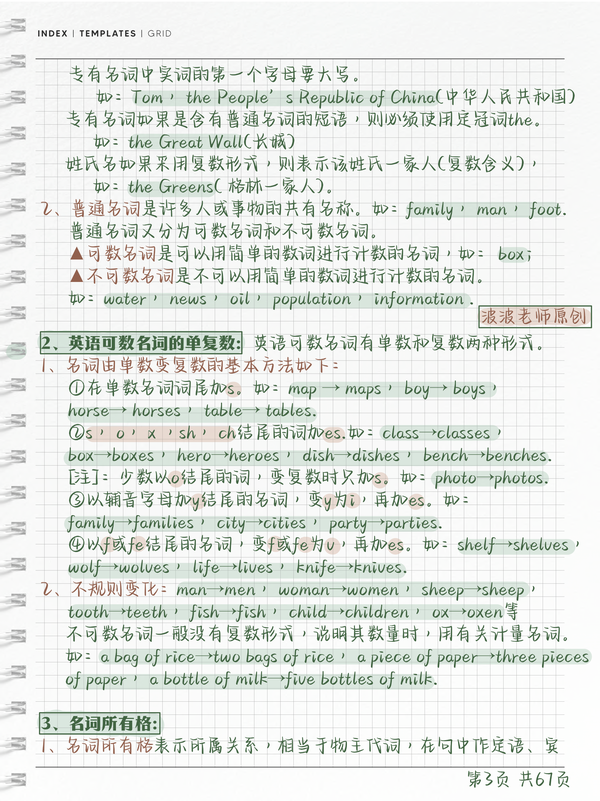 INDEX | TEMPLATES | GRID
专有名词中实词的第一个字母要大写。
如：Tom，the People’s Republic of China(中华人民共和国)
专有名词如果是含有普通名词的短语，则必须使用定冠词the。
如：the Great Wall(长城)
姓氏名如果采用复数形式，则表示该姓氏一家人(复数含义)，
如：the Greens( 格林一家人)。
2、普通名词是许多人或事物的共有名称。如：family，man，foot.
普通名词又分为可数名词和不可数名词。
▲可数名词是可以用简单的数词进行计数的名词，如：box;
▲不可数名词是不可以用简单的数词进行计数的名词。
如：water，news，oil，population，information .
波波老师原创
2、英语可数名词的单复数：英语可数名词有单数和复数两种形式。
1、名词由单数变复数的基本方法如下：
①在单数名词词尾加s。如：map → maps，boy→ boys，
horse→ horses，table→ tables.
②s，o，x，sh，ch结尾的词加es.如：class→classes，
box→boxes，hero→heroes，dish→dishes，bench→benches.
[注]：少数以o结尾的词，变复数时只加s。如：photo→photos.
③以辅音字母加y结尾的名词，变y为i，再加es。如：
family→families，city→cities，party→parties.
④以f或fe结尾的名词，变f或fe为v，再加es。如：shelf→shelves，
wolf→wolves，life→lives，knife→knives.
2、不规则变化：man→men，woman→women，sheep→sheep，
tooth→teeth，fish→fish，child→children，ox→oxen等
不可数名词一般没有复数形式，说明其数量时，用有关计量名词。
如：a bag of rice→two bags of rice，a piece of paper→three pieces
of paper，a bottle of milk→five bottles of milk.
3、名词所有格：
1、名词所有格表示所属关系，相当于物主代词，在句中作定语、宾
第3页 共67页